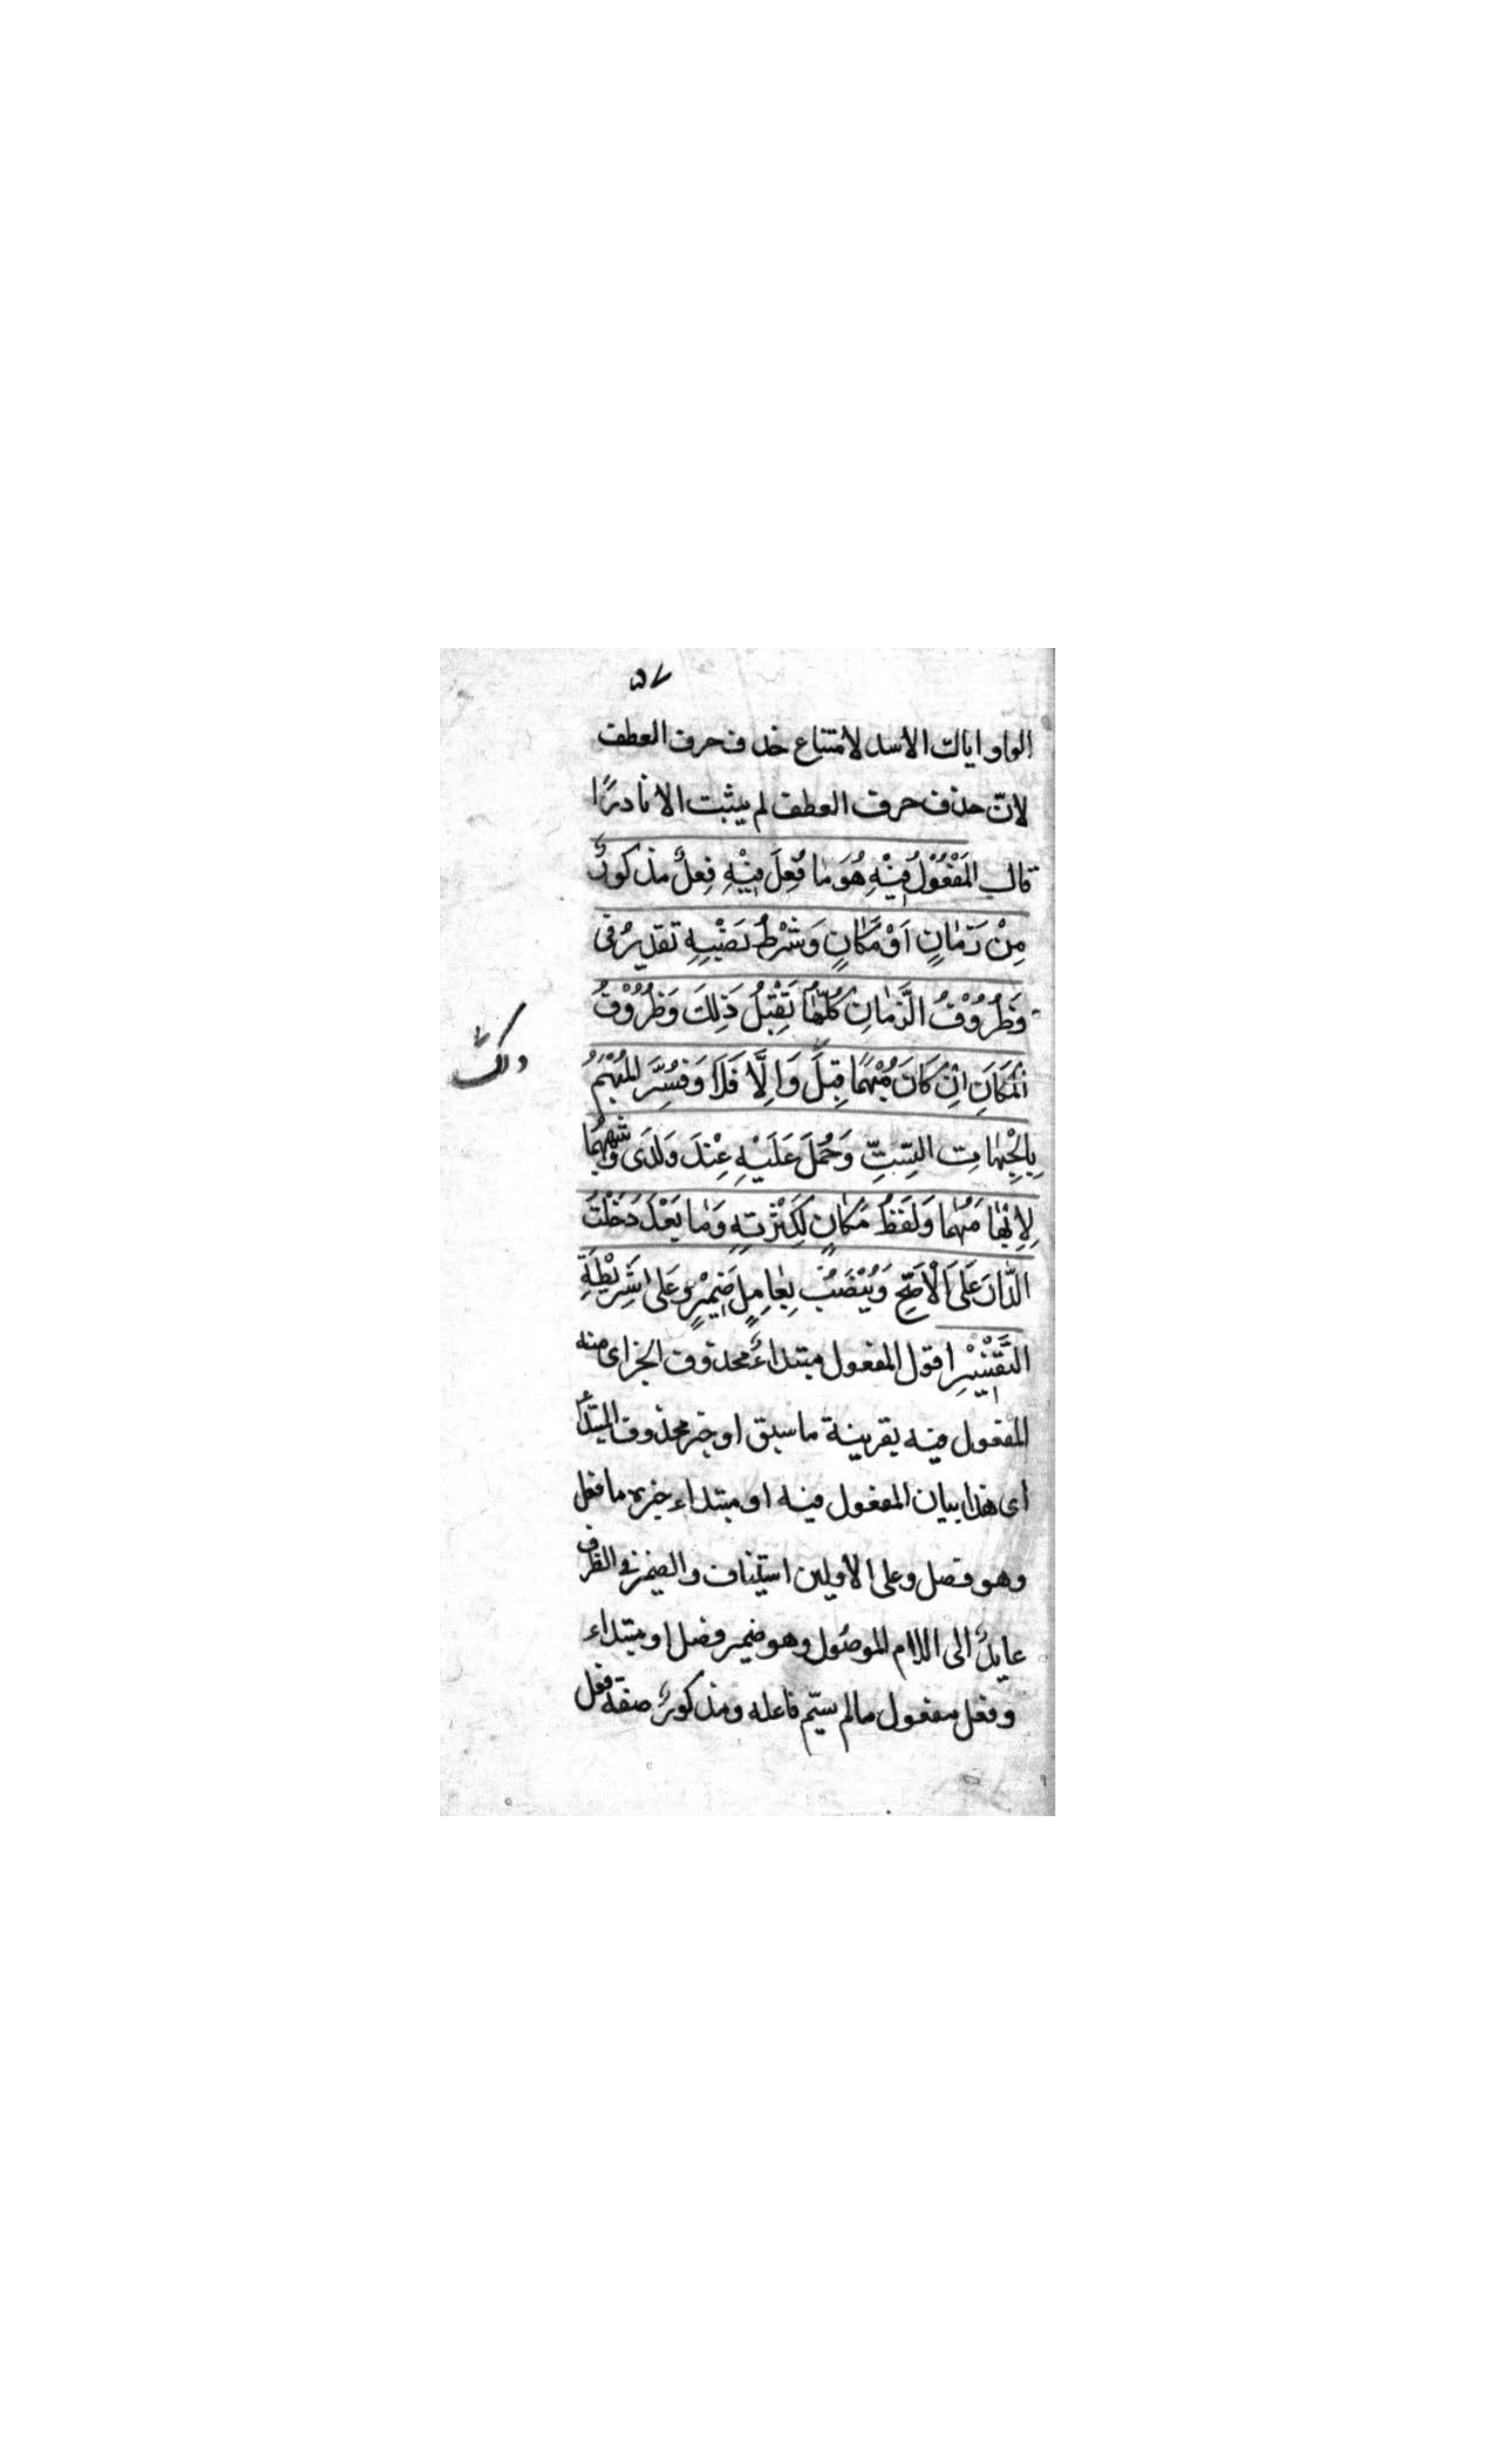 ۵۷
الواو اياك الاسد لامتناع حذف حرف العطف
لانّ حذف حرف العطف لم يثبت الا نادرًا
قال المَفْعُوْلُ فِيْهِ هُوَ مَا فُعِلَ فِيْهِ فِعلٌ مذكورٌ
مِنْ زَمَانٍ اَوْ مَكَانٍ وَشَرْطُ نَصْبِهِ تقديرُ فى
وَظُرُوْفُ الزَّمَانِ كُلُّهَا تَقْبَلُ ذٰلِكَ وَظُرُوْفُ
الْمَكَانِ اِنْ كَانَ مُبْهَمًا قَبِلَ وَاِلَّا فَلَا وَفُسِّرَ المُبْهَمُ
بِالْجِهَاتِ السِّتِّ وَحُمِلَ عَلَيْهِ عِنْدَ وَلَدَى وَشِبْهُهُمَا
لِاِبْهَامِهُمَا وَلَفْظُ مَكَانٍ لِكَثْرَتِهِ وَمَا بَعْدَ دَخَلْتُ
الدَّارَ عَلَى الْاَصَحِّ وَيُنْصَبُ بِعَامِلٍ مُضْمَرٍ وَعَلَى شَرِيْطَةِ
التَّفْسِيْرِ اقول المفعول مبتداءٌ محذوف الخبر اى منه
المفعول فيه بقرينة ما سبق او خبر محذوف المبتدأ
اى هذا بيان المفعول فيه او مبتداء خبره ما فعل
وهو فصل وعلى الاولين استيناف والضمير فى الظرف
عايدٌ الى اللام الموصول وهو ضمير فصل او مبتداء
وفعل مفعول مالم يسمّ فاعله ومذكورٌ صفة فعل